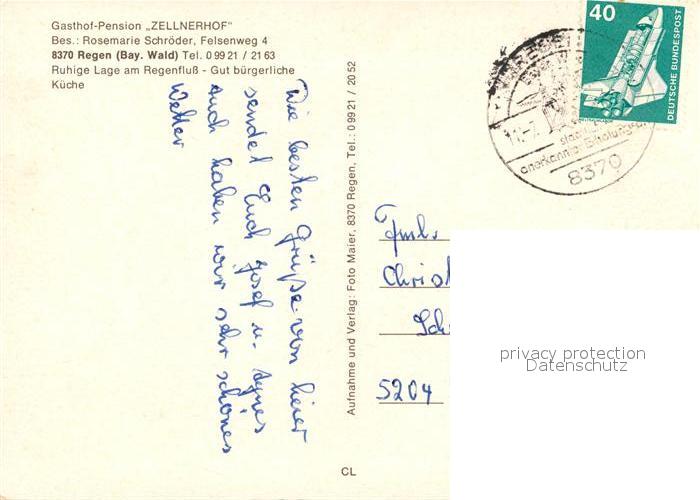 Gasthof-Pension „ZELLNERHOF"
Bes.: Rosemarie Schröder, Felsenweg 4
8370 Regen (Bay. Wald) Tel. 0 99 21 / 21 63
Ruhige Lage am Regenfluß - Gut bürgerliche
Küche
Die besten Grüße von hier
sendet Euch Josef u. Agnes
auch haben wir sehr schönes
Wetter
Aufnahme und Verlag: Foto Maier, 8370 Regen, Tel.: 0 99 21 / 20 52
40
DEUTSCHE BUNDESPOST
staatl.
anerkannter Erholungsort
8370
Fmls.
Christ
Sch
5204
privacy protection
Datenschutz
CL